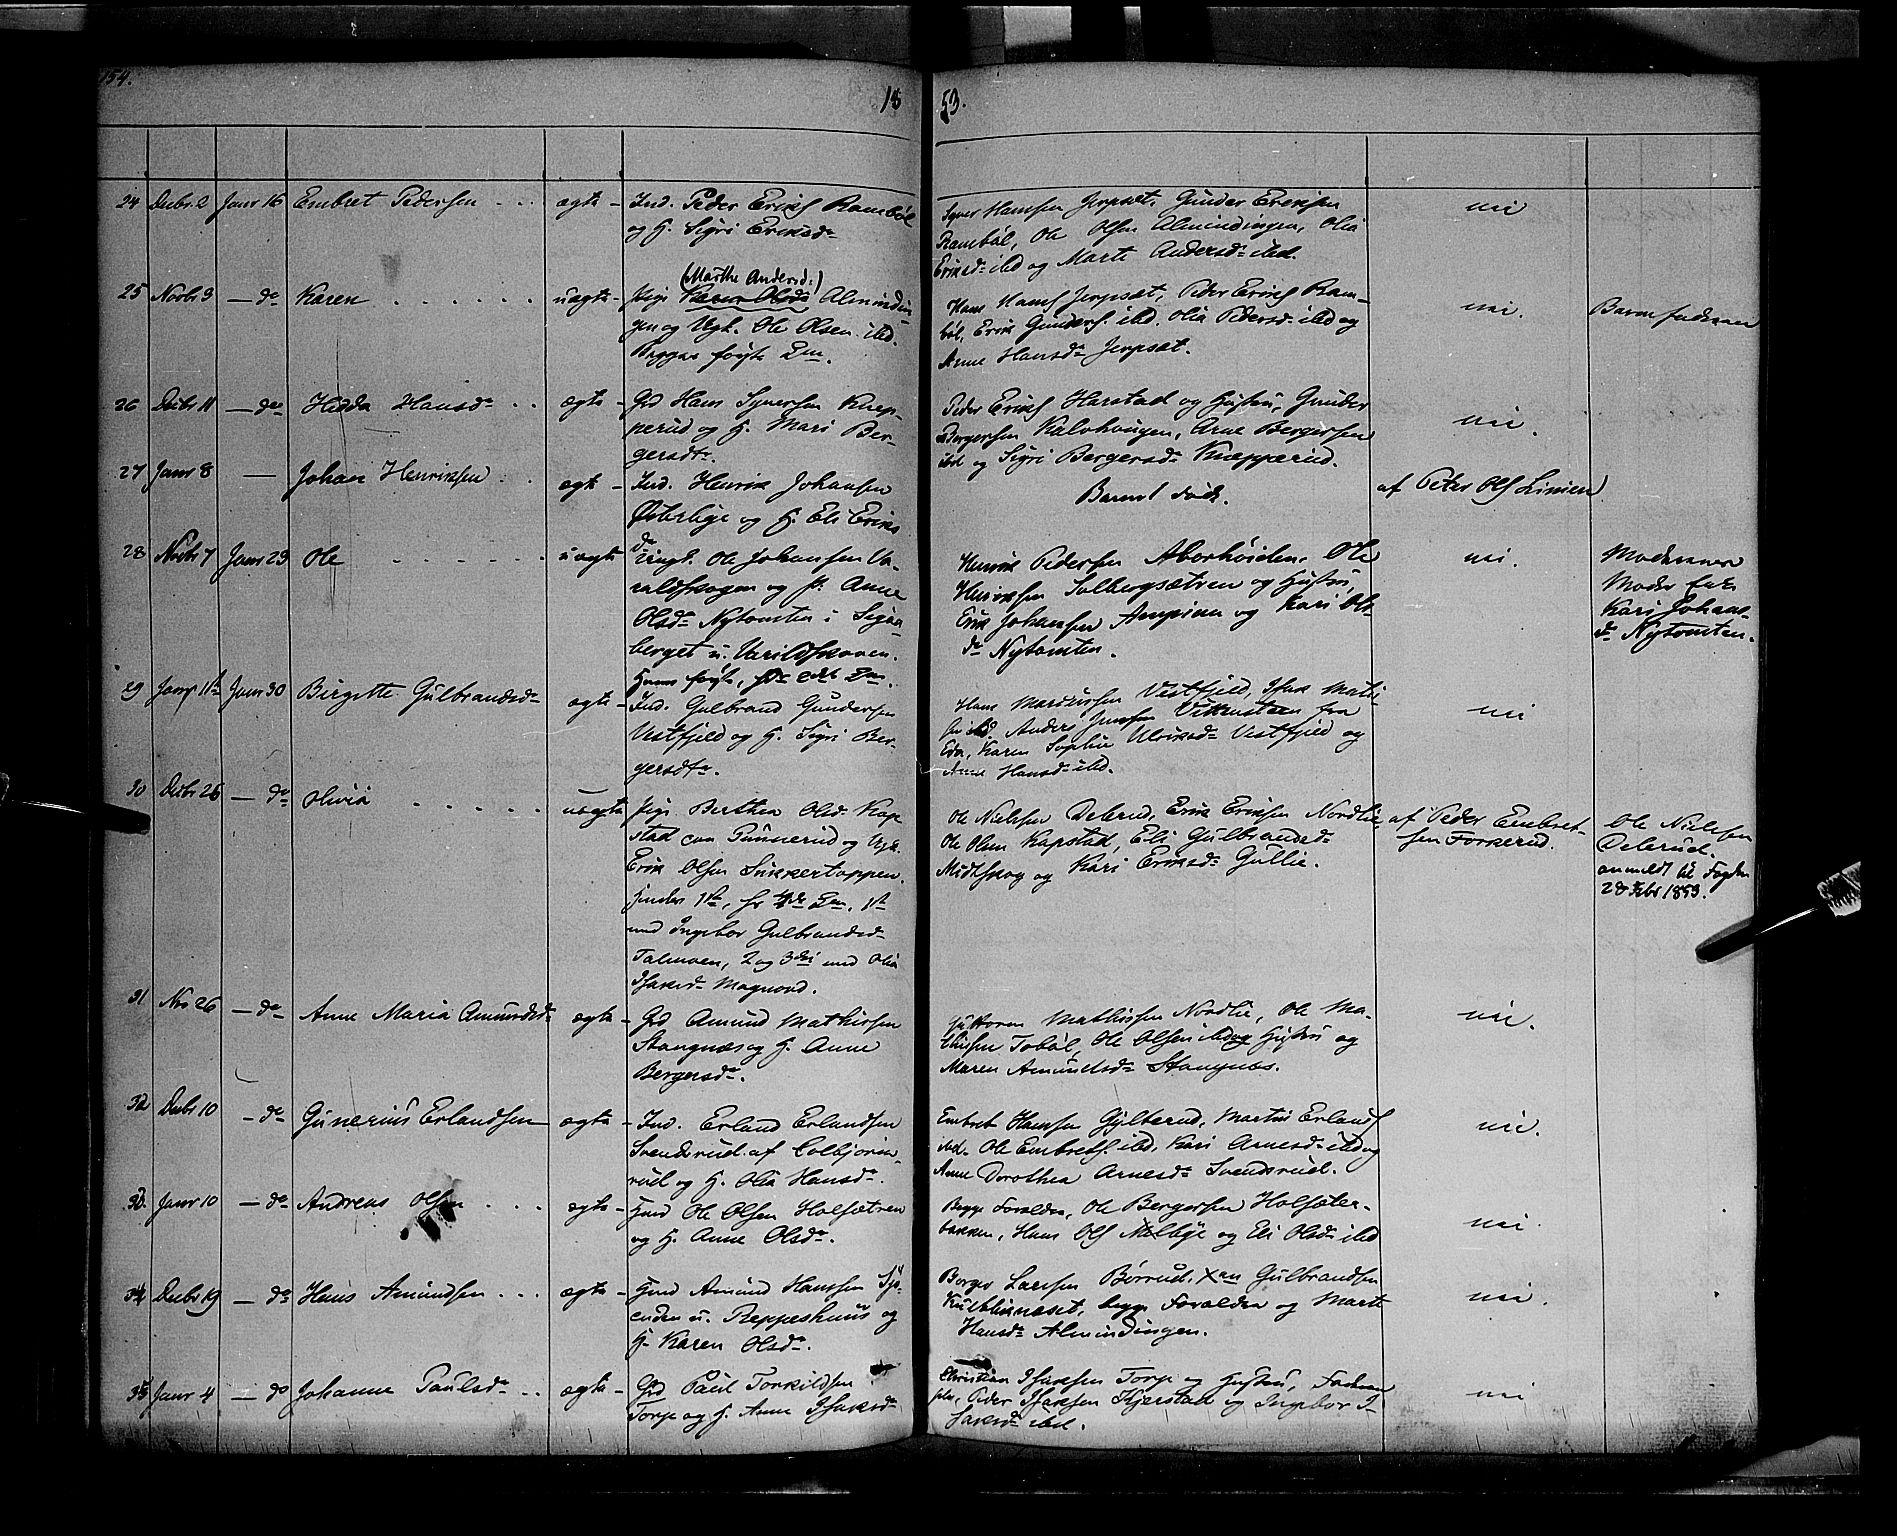 154.
18
53.
24 Decbr 2 Janr 16 Embret Pedersen ægte Ind. Peder Eriks Rambøl
og H. Sigri Eriksd
Syver Hansen Jerpset, Gunder Eriksen
Rambøl, Ole Olsen Almindingen, Olia
Eriksd ibd og Marte Andersd ibd.
nei
25 Novbr 9 — do Karen uægte
(Marthe Andersd:)
Pige Karen Olsd Almindin-
gen og Ugk. Ole Olsen ibd.
Begges første
Hans Hans Jerpset, Peder Eriks Ram-
bøl, Erik Gunders. ibd. Olia Pedersd ibd og
Anne Hansd Jerpset.
nei.
Barnefaderen
26 Decbr 11 — do Hedda Hansd ægte Grd Hans Syversen Knep-
perud og H. Mari Ber-
gersdtr.
Peder Eriks Harstad og Hustru, Gunder
Bergersen Kalvhougen, Arne Bergersen
ibd og Sigri Bergersd Knepperud.
nei.
27 Janr 8 — Johan Henriksen ægte Ind. Henrik Johansen
Østerlige og H. Eli Eriks
d
Barnet død.
af Peter Ols Linien
28 Novbr 7 Janr 23 Ole uægte Ungk. Ole Johansen Va-
raldskogen og P. Anne
Olsd Nytomten i Signe-
berget u. Varildskoven.
Hans første, 
Henrik Pedersen Aborhøiden, Ole
Henriksen Solbergsætren og Hustru,
Erik Johansen og Kari Ols
d Nytomten.
nei.
Moderens
Moder Enke
Kari Johans
d Nytomten.
29 Janr 11te Janr 30 Birgitte Gulbrandsd ægte Ind. Gulbrand Gundersen
Vestfjeld og H. Sigri Ber-
gersdtr.
Hans Vestfjeld, Isak Mati-
ibd. Anders Jensen fra
Eda, Karen Sophie Ulriksd Vestfjeld og
Anne Hansd ibd.
nei
30 Decbr 26 — do Olivia uægte Pige Berthea Olsd Kap
stad og Ugk.
Erik Olsen Sukkertoppen.
Hendes 1ste, 1st
med Ingebor Gulbrandsd
Talmoen, 2 og 3die med Olia
Isaksd Magnord.
Ole Nielsen Delerud, Erik Eriksen Nordlie,
Ole Olsen Kapstad, Eli Gulbrandsd
Midtskog og Kari Eriksd Gullie.
af Peder Embret-
sen Forkerud.
Ole Nielsen
Delerud.
anmeldt til Fogden
28 Febr 1853.
31 Nov 26 — do Anne Maria Amundsd ægte Grd Amund Mathisen
Stangnæs og H. Anne
Bergersd.
Guttorm Mathisen Nordlie, Ole Ma-
thisen Tobøl, Ole Olsen ibd og Hustru og
Maren Amundsd Stangnæs.
nei.
32 Decbr 10 — do Gunerius Erlandsen ægte Ind. Erland Erlandsen
Svendsrud af Colbjørns-
rud og H. Olia Hansd.
Embret Hansen Gylterud, Martin Erlands
ibd. Ole Embrets. ibd, Kari Arnesd ibd og
Anne Dorothea Arnesd Svendsrud.
nei.
33. Janr 10 — do Andreas Olsen ægte Hmd Ole Olsen Holsætren
og H. Anne Olsd.
Begge Forældre, Ole Bergersen Holsæter-
bakken, Hans Ols Melbye og Eli Olsd ibd
nei.
34 Decbr 19 — do Hans Amundsen ægte Hmd Amund Hansen Sjø-
enden u. Reppeshuus og
H. Karen Olsd.
Berger Larsen Børrud, Xan Gulbrandsen
begge Forældre og Marte
Hansd Almindingen.
nei.
35 Janr 4 — do Johanne Paulsd ægte Grd Paul Torkildsen
Torp og H. Anne Isaksd
Christian Isaksen Torp og Hustru, Faderen
Peder Isaksen Kjerstad og Ingebor I-
saksd ibd.
nei